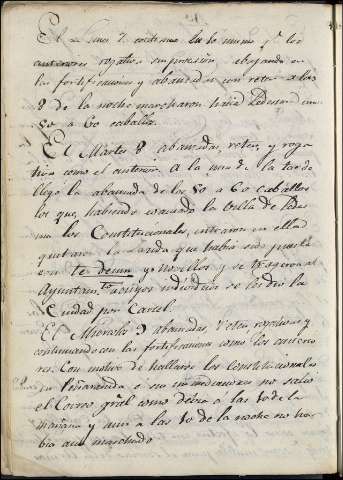 El Lunes 7 continuo lo mismo q.e los
anteriores rogativa sin procesion, trabajando en
las fortificaciones y abanzadas con reten a las
8 de la noche marcharon hacia Ledesma unos
50 a 60 caballos.
El Martes 8 abanzadas, reten, y roga
tiva como el anterior. A la una de la tarde
llegó la abanzada de los 50 a 60 caballos
los que, habiendo evacuado la Villa de Ledes
ma los Constitucionales, entraron en ella
quitaron la que habia sido puesta
con te deum y Novillos y se trageron al
Ayuntam.to a cuyos individuos se les dio la
Ciudad por Carcel.
El Miercoles 9 abanzadas, reten, rogativas y
continuando con las fortificaciones como los anterio
res. Con motivo de hallarse los Constitucionales
en Peñaranda o sus inmediaciones no salio
el Correo gral como debia a las 10 de la
mañana y aun a las 10 de la noche no ha
bia aun marchado